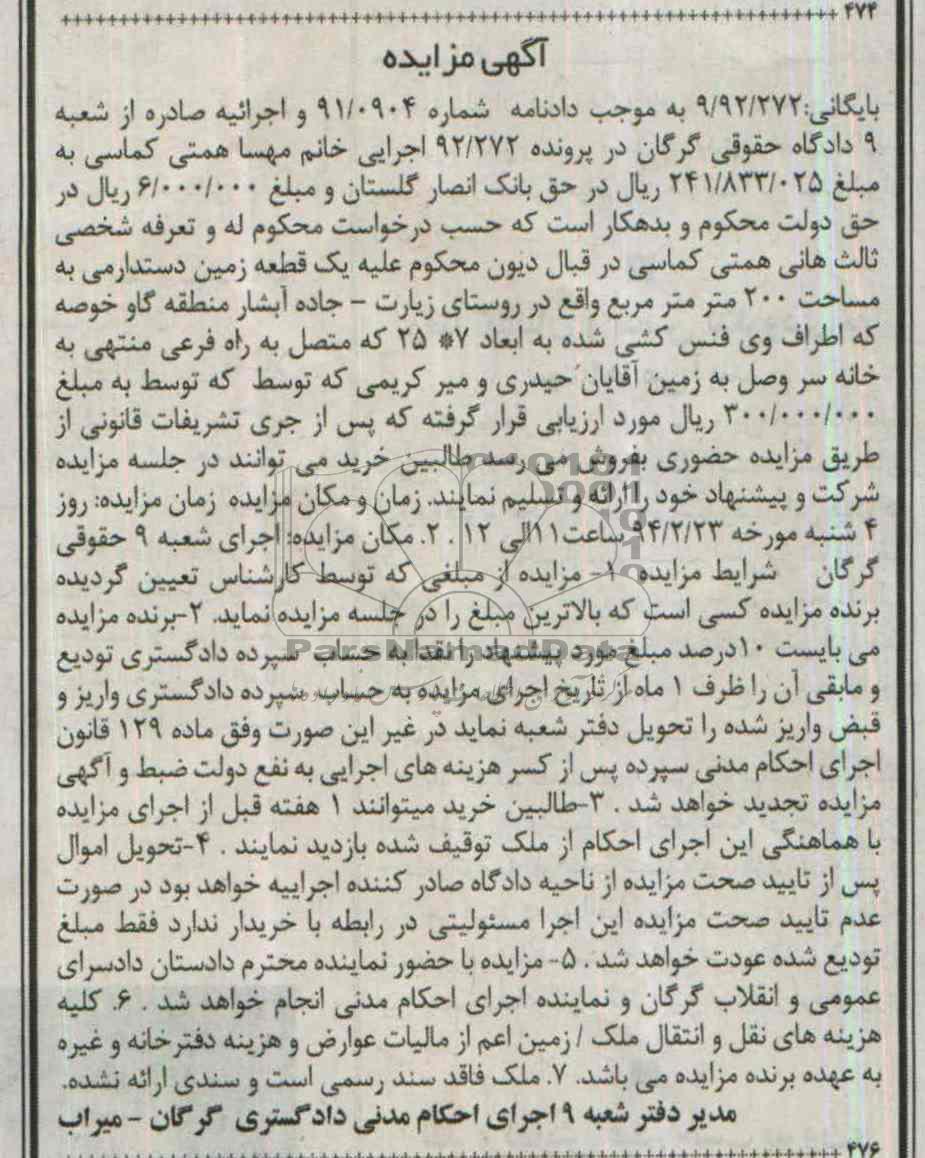 ۴۷۴
آگهی مزایده
بایگانی:۹/۹۲/۲۷۲ به موجب دادنامه شماره ۹۱/۰۹۰۴ و اجرائیه صادره از شعبه
۹ دادگاه حقوقی گرگان در پرونده ۹۲/۲۷۲ اجرایی خانم مهسا همتی کماسی به
مبلغ ۲۴۱/۸۳۳/۰۲۵ ریال در حق بانک انصار گلستان و مبلغ ۶/۰۰۰/۰۰۰ ریال در
حق دولت محکوم و بدهکار است که حسب درخواست محکوم له و تعرفه شخصی
ثالث هانی همتی کماسی در قبال دیون محکوم علیه یک قطعه زمین دستدارمی به
مساحت ۲۰۰ متر متر مربع واقع در روستای زیارت – جاده آبشار منطقه گاو خوصه
که اطراف وی فنس کشی شده به ابعاد ۷* ۲۵ که متصل به راه فرعی منتهی به
خانه سر وصل به زمین آقایان حیدری و میر کریمی که توسط که توسط به مبلغ
۳۰۰/۰۰۰/۰۰۰ ریال مورد ارزیابی قرار گرفته که پس از جری تشریفات قانونی از
طریق مزایده حضوری بفروش می رسد طالبین خرید می توانند در جلسه مزایده
شرکت و پیشنهاد خود را ارائه و تسلیم نمایند. زمان و مکان مزایده زمان مزایده: روز
۴ شنبه مورخه ۹۴/۲/۲۳ ساعت۱۱الی ۱۲ . ۲. مکان مزایده: اجرای شعبه ۹ حقوقی
گرگان شرایط مزایده ۱- مزایده از مبلغی که توسط کارشناس تعیین گردیده
برنده مزایده کسی است که بالاترین مبلغ را در جلسه مزایده نماید. ۲-برنده مزایده
می بایست ۱۰درصد مبلغ مورد پیشنهاد را نقدا به حساب سپرده دادگستری تودیع
ParsNamadData
و مابقی آن را ظرف ۱ ماه از تاریخ اجرای مزایده به حساب سپرده دادگستری واریز و
قبض واریز شده را تحویل دفتر شعبه نماید در غیر این صورت وفق ماده ۱۲۹ قانون
اجرای احکام مدنی سپرده پس از کسر هزینه های اجرایی به نفع دولت ضبط و آگهی
مزایده تجدید خواهد شد . ۳-طالبین خرید میتوانند ۱ هفته قبل از اجرای مزایده
با هماهنگی این اجرای احکام از ملک توقیف شده بازدید نمایند . ۴-تحویل اموال
پس از تایید صحت مزایده از ناحیه دادگاه صادر کننده اجراییه خواهد بود در صورت
عدم تایید صحت مزایده این اجرا مسئولیتی در رابطه با خریدار ندارد فقط مبلغ
تودیع شده عودت خواهد شد . ۵- مزایده با حضور نماینده محترم دادستان دادسرای
عمومی و انقلاب گرگان و نماینده اجرای احکام مدنی انجام خواهد شد . ۶. کلیه
هزینه های نقل و انتقال ملک / زمین اعم از مالیات عوارض و هزینه دفترخانه و غیره
به عهده برنده مزایده می باشد. ۷. ملک فاقد سند رسمی است و سندی ارائه نشده.
مدیر دفتر شعبه ۹ اجرای احکام مدنی دادگستری گرگان – میراب
۴۷۶